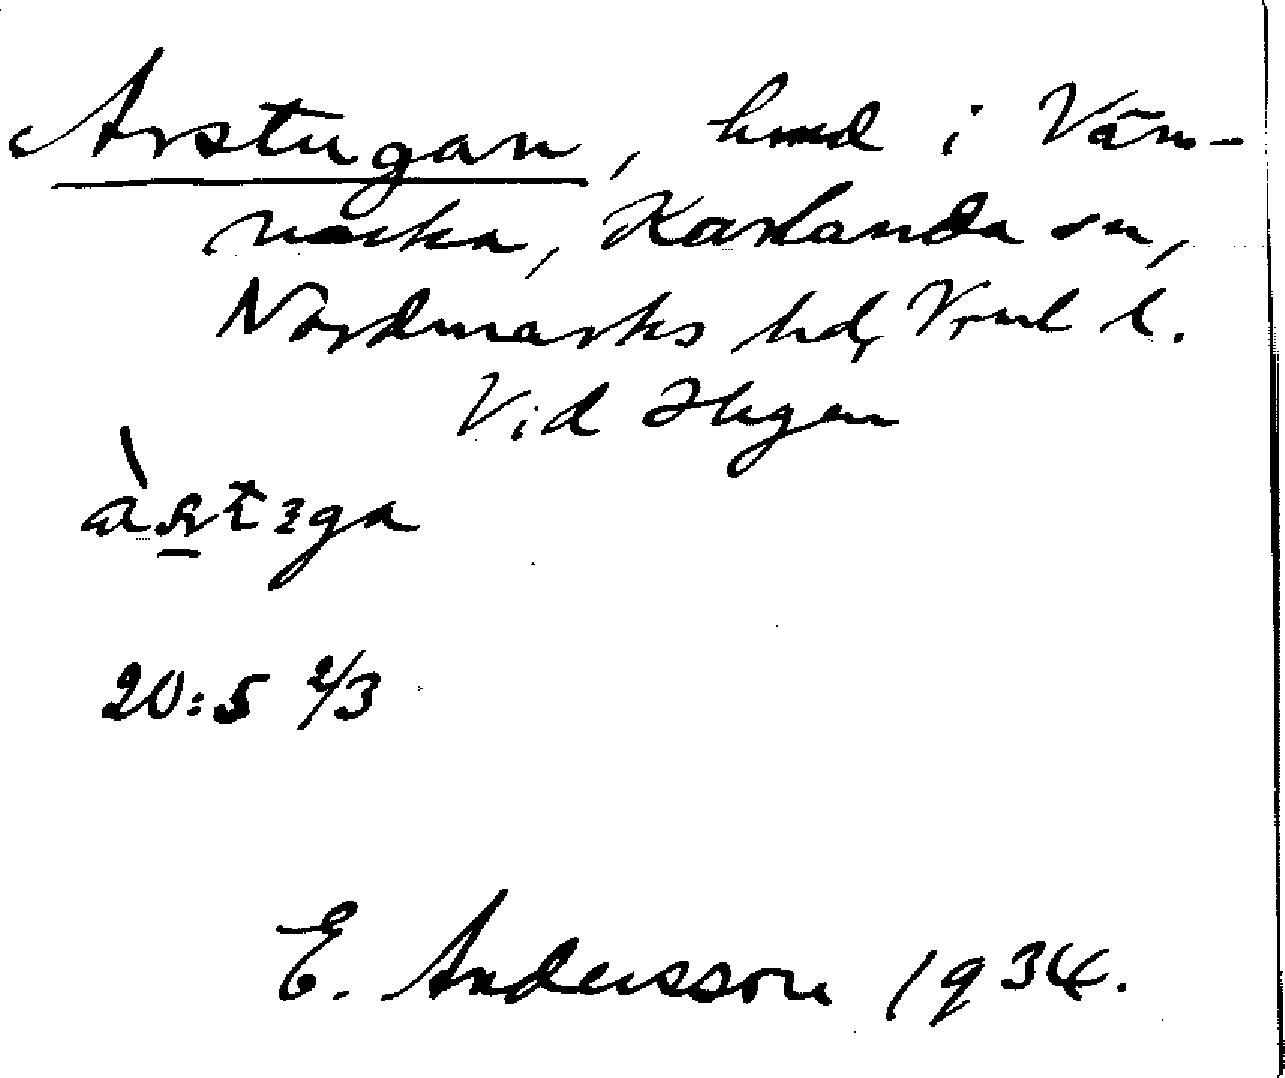 Arstugan, hmd i Vän-
nacka, Karlanda sn,
Nordmarks hd, Vrml l.
Vid Hugn
20:5 2/3
E. Andersson 1934.